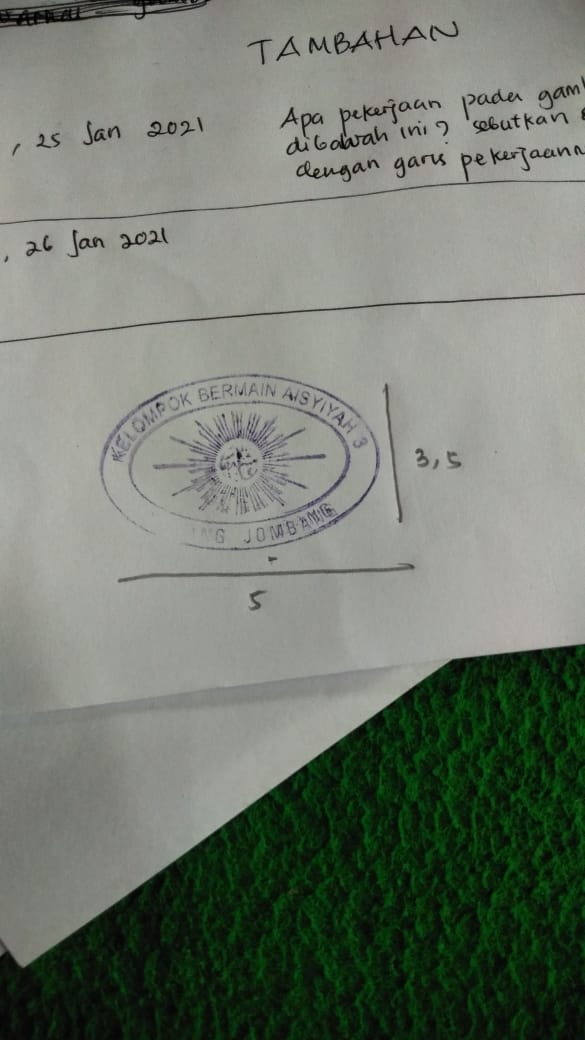 TAMBAHAN
, 25 Jan 2021
Apa pekerjaan pada
dibawah ini? sebutkan
dengan garis
, 26 Jan 2021
KELOMPOK BERMAIN AISYIYAH 3
JOMBANG
3,5
5